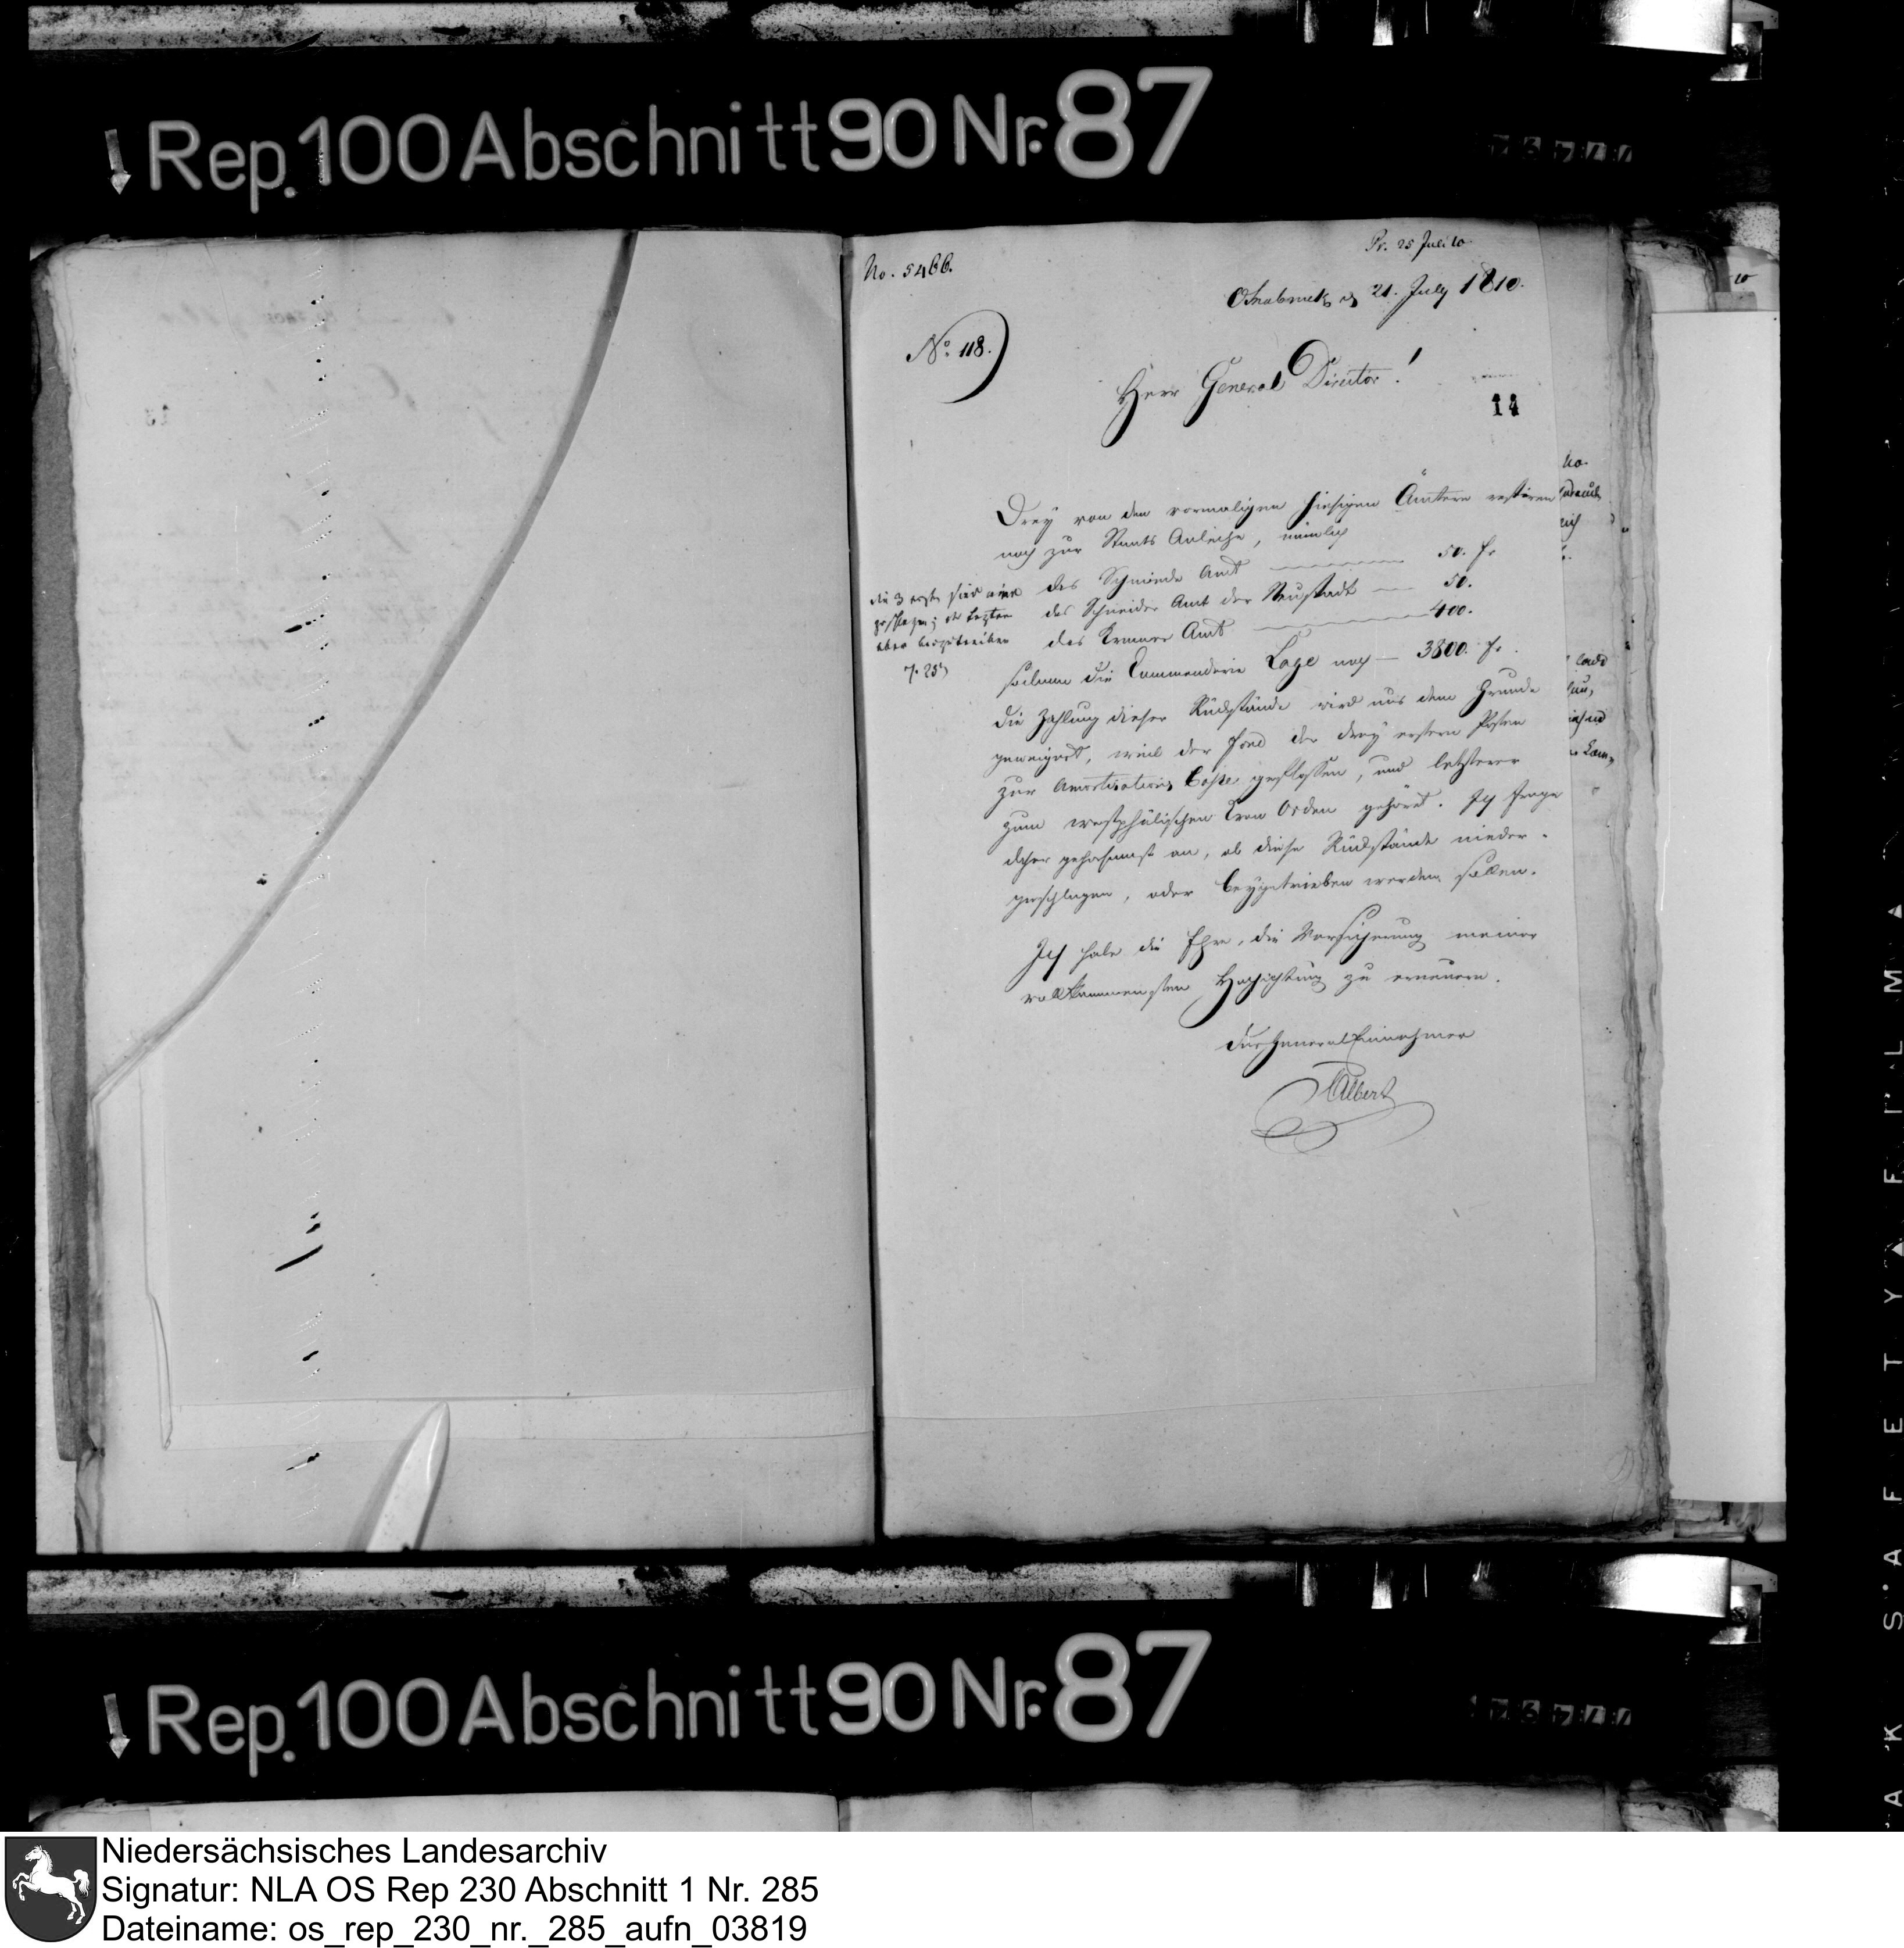 Rep. 100 Abschnitt 90 Nr. 87
No. 5466.
Pr. 25 Juli 10
Osnabrück d 21. July 1810.
No. 118.
Herr General Director!
14
Drey von den vormaligen hiesigen Ämtern restiren
noch zur Staats Anleihe, nämlich
das Schmiede Amt 50. fr
das Schneider Amt der Neustadt 50.
das Kramer Amt 400.
sodann die Commenderie Lage noch 3800. fr.
die 3 erste sind
letztere
aber beyzutreiben
Die Zahlung dieser Rückstände wird aus dem Grunde
geweigert, weil der Fond der drey erstern Posten
zur Amortisations Casse geflossen, und letzterer
zum westphälischen Kron Orden gehöret. Ich frage
daher gehorsamst an, ob diese Rückstände nieder-
geschlagen, oder beygetrieben werden sollen.
Ich habe die Ehre, die Versicherung meiner
vollkommensten Hochachtung zu erneuern.
Der General Einnehmer
Albert
SAFETY FILM
Rep. 100 Abschnitt 90 Nr. 87
Niedersächsisches Landesarchiv
Signatur: NLA OS Rep 230 Abschnitt 1 Nr. 285
Dateiname: os_rep_230_nr._285_aufn_03819